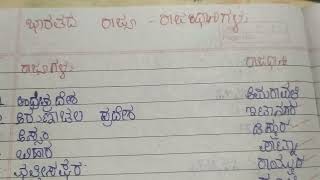 ಭಾರತದ ರಾಜ್ಯ - ರಾಜಧಾನಿಗಳು
ರಾಜ್ಯಗಳು ರಾಜಧಾನಿ
ಆಂಧ್ರಪ್ರದೇಶ ಅಮರಾವತಿ
ಅರುಣಾಚಲ ಪ್ರದೇಶ ಇಟಾನಗರ
ಅಸ್ಸಾಂ ದಿಸ್ಪುರ
ಬಿಹಾರ ಪಾಟ್ನಾ
ರಾಯ್ಪುರ